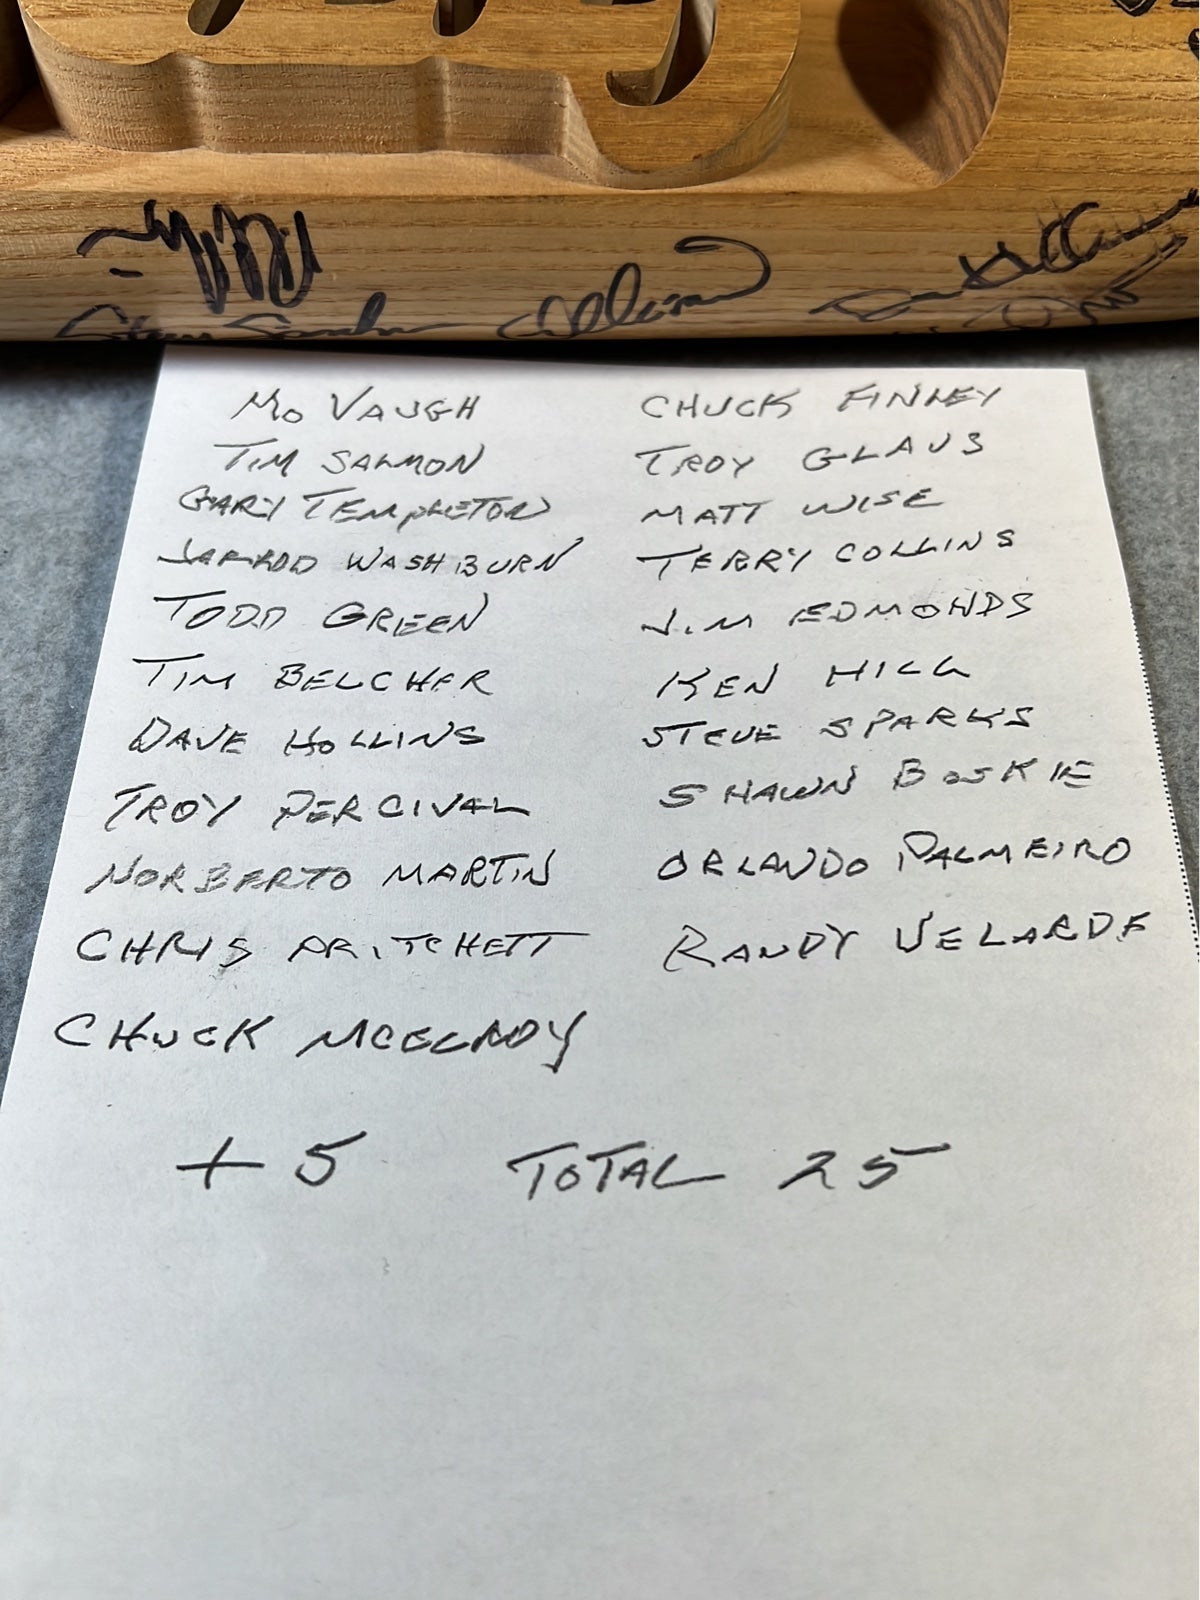 MO VAUGH
TIM SALMON
GARY TEMPLETON
JARROD WASHBURN
TODD GREEN
TIM BELCHER
DAVE HOLLINS
TROY PERCIVAL
NORBERTO MARTIN
CHRIS PRITCHETT
CHUCK MCELROY
CHUCK FINLEY
TROY GLAUS
MATT WISE
TERRY COLLINS
JIM EDMONDS
KEN HILL
STEVE SPARKS
SHAWN BOSKIE
ORLANDO PALMEIRO
RANDY VELARDE
+ 5 TOTAL 25